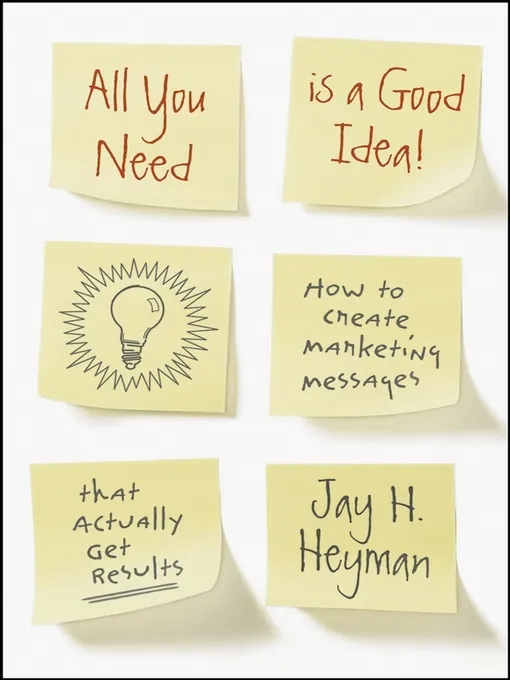 All You
Need
is a Good
Idea!
How to
create
marketing
messages
that
Actually
Get
Results
Jay H.
Heyman